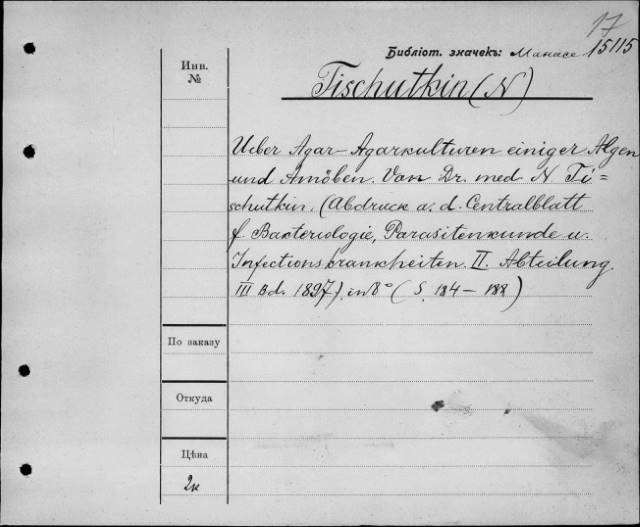 17
Библіот. значекъ: Манасе 15115
Инв.
№
Tischutkin (N)
Ueber Agar-Agarkulturen einiger Algen
und Amöben. Von Dr. med N Ti=
schutkin. (Abdruck a. d. Centralblatt
f Bakteriologie, Parasitenkunde u.
Infectionskrankheiten. II. Abteilung
III Bd. 1897) in 8° (S. 184-188)
По заказу
Откуда
Цѣна
2к